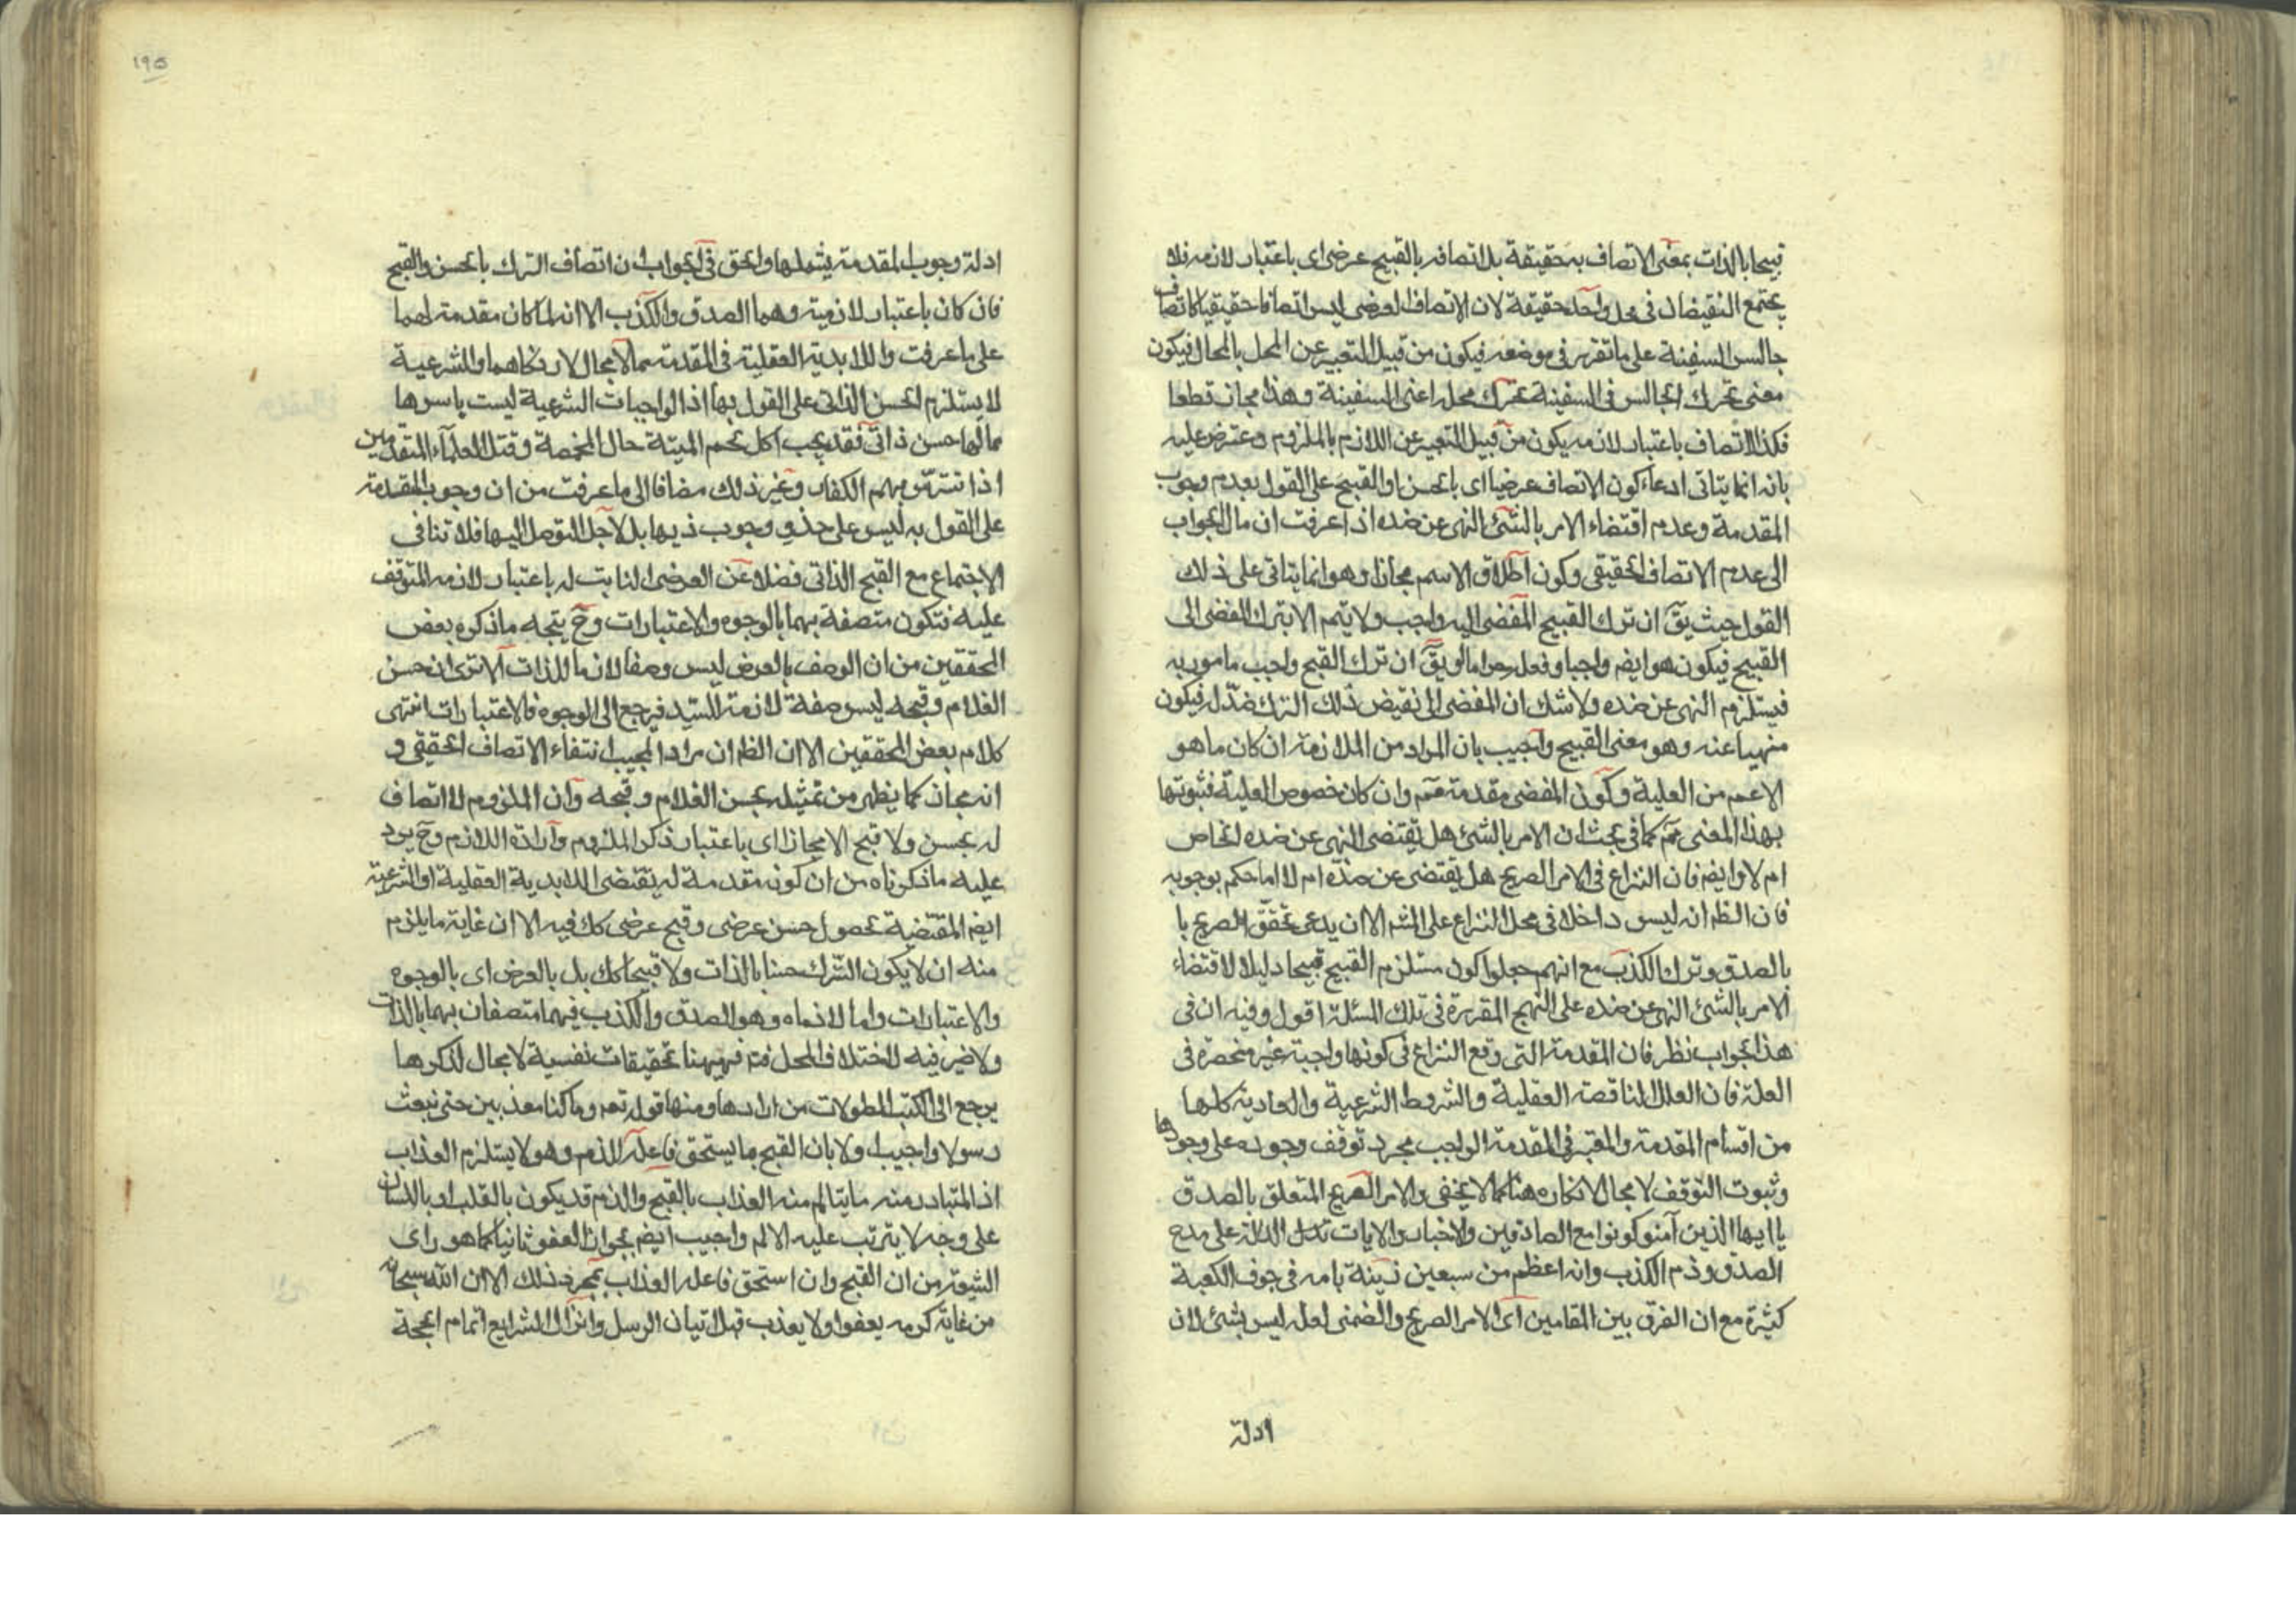 قبيحا بالذات بمعنى الاتصاف به حقيقة بل اتصافه بالقبيح عرضى اى باعتبار لازمه فلا
يجتمع النقيضان فى محل واحد حقيقة لان الاتصاف العرضى ليس اتصافا حقيقيا كاتصاف
جالس السفينة على ما تقرر فى موضعه فيكون من قبيل التعبير عن المحل بالحال فيكون
معنى تحرك الجالس فى السفينة تحرك محله اعنى السفينة وهذا مجاز قطعا
فكذا الاتصاف باعتبار لازمه يكون من قبيل التعبير عن اللازم بالملزوم وعترض عليه
بانه انما يتاتى ادعاء كون الاتصاف عرضيا اى بالحسن او القبيح على القول بعدم وجوب
المقدمة وعدم اقتضاء الامر بالشئ النهى عن ضده اذا عرفت ان مال الجواب
الى عدم الاتصاف الحقيقى وكون اطلاق الاسم مجازا وهو انما يتاتى على ذلك
القول حيث يق ان ترك القبيح المفضى اليه واجب ولا يتم الا بترك المفضى الى
القبيح فيكون هو ايضم واجبا وفعله حراما او يق ان ترك القبح واجب مامور به
فيستلزم النهى عن ضده ولا شك ان المفضى الى نقيض ذلك الترك ضد له فيكون
منهيا عنه وهو معنى القبيح واجيب بان المراد من الملازمة ان كان ما هو
الاعم من العلية وكون المفضى مقدمة فمم وان كان خصوص العلية فثبوتها
بهذا المعنى مم كما فى بحث ان الامر بالشئ هل يقتضى النهى عن ضده الخاص
ام لا وايضم فان النزاع فى الامر الصريح هل يقتضى عن ضده ام لا اما حكم بوجوبه
فان الظم انه ليس داخلا فى محل النزاع على الشم الا ان يدعى تحقق الصريح با
بالصدق وترك الكذب مع انهم جعلوا كون مستلزم القبيح قبيحا دليلا لاقتضاء
الامر بالشئ النهى عن ضده على النهج المقررة فى تلك المسئلة اقول وفيه ان فى
هذا الجواب نظر فان المقدمة التى وقع النزاع فى كونها واجبة غير منحصرة فى
العلة فان العلل الناقصة العقلية والشروط الشرعية والعادية كلها
من اقسام المقدمة والمعتبر فى المقدمة الواجب مجرد توقف وجوده على وجودها
وثبوت التوقف لا مجال لانكاره هنا كما لا يخفى والامر الصريح المتعلق بالصدق
يا ايها الذين آمنو كونوا مع الصادقين والاخبار والايات تدل الدالة على مدح
الصدق وذم الكذب وانه اعظم من سبعين زينة بامه فى جوف الكعبة
كثيرة مع ان الفرق بين المقامين اى الامر الصريح والضمنى لعله ليس بشئ لان
ادلة
١٩٥
ادلة وجوب المقدمة يشملها والحق فى الجواب ان اتصاف الترك بالحسن والقبح
فان كان باعتبار لازميه وهما الصدق والكذب الا انه لما كان مقدمة لهما
على ما عرفت واللابدية العقلية فى المقدمة مما لا مجال لانكاهما والشرعية
لا يستلزم الحسن الذاتى على القول بها اذ الواجبات الشرعية ليست باسرها
مما لها حسن ذاتى فقد يجب اكل لحم الميتة حال المخمصة وقتل العلماء المتقدمين
اذا تترس بهم الكفار وغير ذلك مضافا الى ما عرفت من ان وجوب المقدمة
على القول به ليس على حذو وجوب ذيها بل لاجل التوصل اليها فلا تنافى
الاجتماع مع القبح الذاتى فضلا عن العرضى الثابت له باعتبار لازمه المتوقف
عليه فتكون متصفة بهما بالوجوه والاعتبارات وح يتجه ما ذكره بعض
المحققين من ان الوصف بالعرض ليس وصفا لازما للذات الا ترى ان حسن
الغلام وقبحه ليس صفة لازمة للسيد فيرجع الى الوجوه فالاعتبارات انتهى
كلام بعض المحققين الا ان الظم ان مراد المجيب انتفاء الاتصاف الحقيقى و
انه مجاز كما يظهر من تمثيله بحسن الغلام وقبحه وان الملزوم لا اتصاف
له بحسن ولا قبح الا مجازا اى باعتبار ذكر الملزوم وارادة اللازم وح يرد
عليه ما ذكرناه من ان كونه مقدمة له يقتضى اللابدية العقلية او الشرعية
ايضم المقتضية لحصول حسن عرضى وقبح عرضى كك فيه الا ان غاية ما يلزم
منه ان لا يكون الترك حسنا بالذات ولا قبيحا كك بل بالعرض اى بالوجوه
والاعتبارات واما لازماه وهو الصدق والكذب فيهما متصفان بهما بالذات
ولا ضير فيه لاختلاف المحل فتم فهيهنا تحقيقات نفسية لا مجال لذكرها
يرجع الى الكتب المطولات من ارادها ومنها قوله تعم وما كنا معذبين حتى نبعث
رسولا واجيب اولا بان القبح ما يستحق فاعله الذم وهو لا يستلزم العذاب
اذ المتبادر منه ما يتالم منه العذاب بالقبح والذم قد يكون بالقلب او باللسان
على وجه لا يترتب عليه الالم واجيب ايضم بجواز العفو ثانيا كما هو راى
الشيعة من ان القبح وان استحق فاعله العذاب بمجرد ذلك الا ان الله سبحانه
من غاية كرمه يعفوا ولا يعذب قبل اتيان الرسل وانزال الشرايع اتمام الحجة